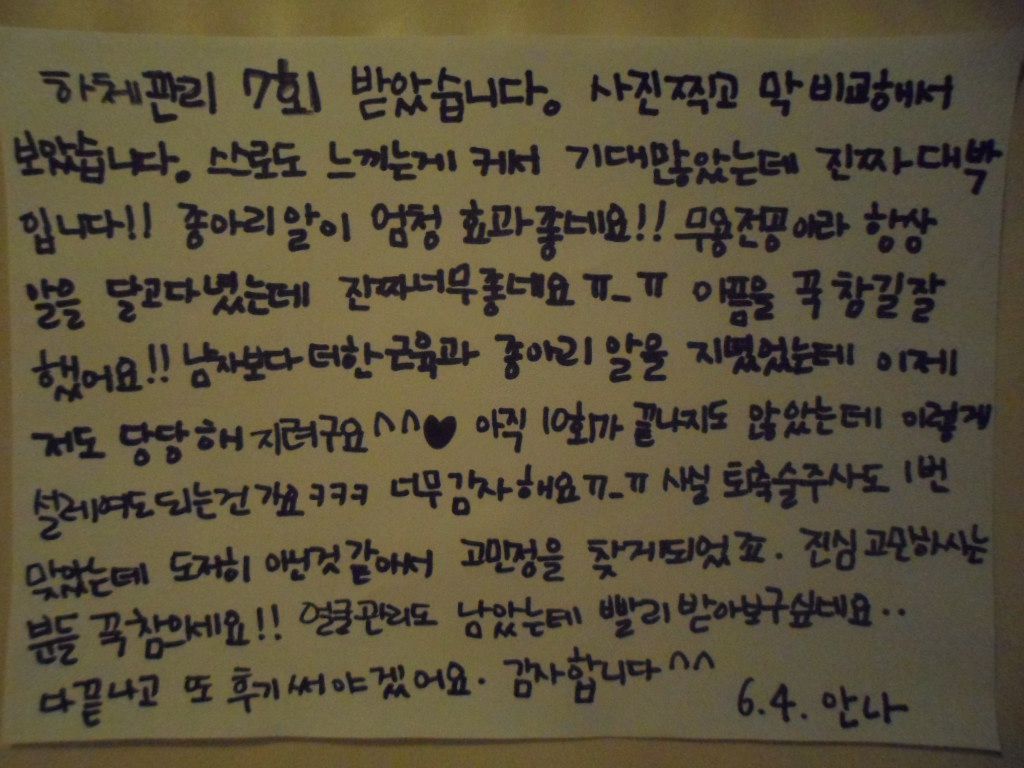 하체관리 7회 받았습니다. 사진찍고 막 비교해서
보았습니다. 스스로도 느끼는게 커서 기대만많았는데 진짜대박
입니다!! 종아리알이 엄청 효과좋네요!! 무용전공이라 항상
알을 달고다녔는데 진짜너무좋네요ㅠ_ㅠ 아픔을 꾹 참길잘
했어요!! 남자보다 더한근육과 종아리 알을 지녔었는데 이제
저도 당당해지려구요^^♥ 아직 10회가 끝나지도 않았는데 이렇게
설레여도되는건가요ㅋㅋㅋ 너무감사해요ㅠ_ㅠ 사실 퇴축술주사도 1번
맞았는데 도저히 아닌것같아서 고민정을 찾게되었죠. 진심고민하시는
분들 꼭참으세요!! 얼굴관리도 남았는데 빨리받아보구싶네요..
다끝나고 또 후기써야겠어요. 감사합니다^^
6.4. 안나